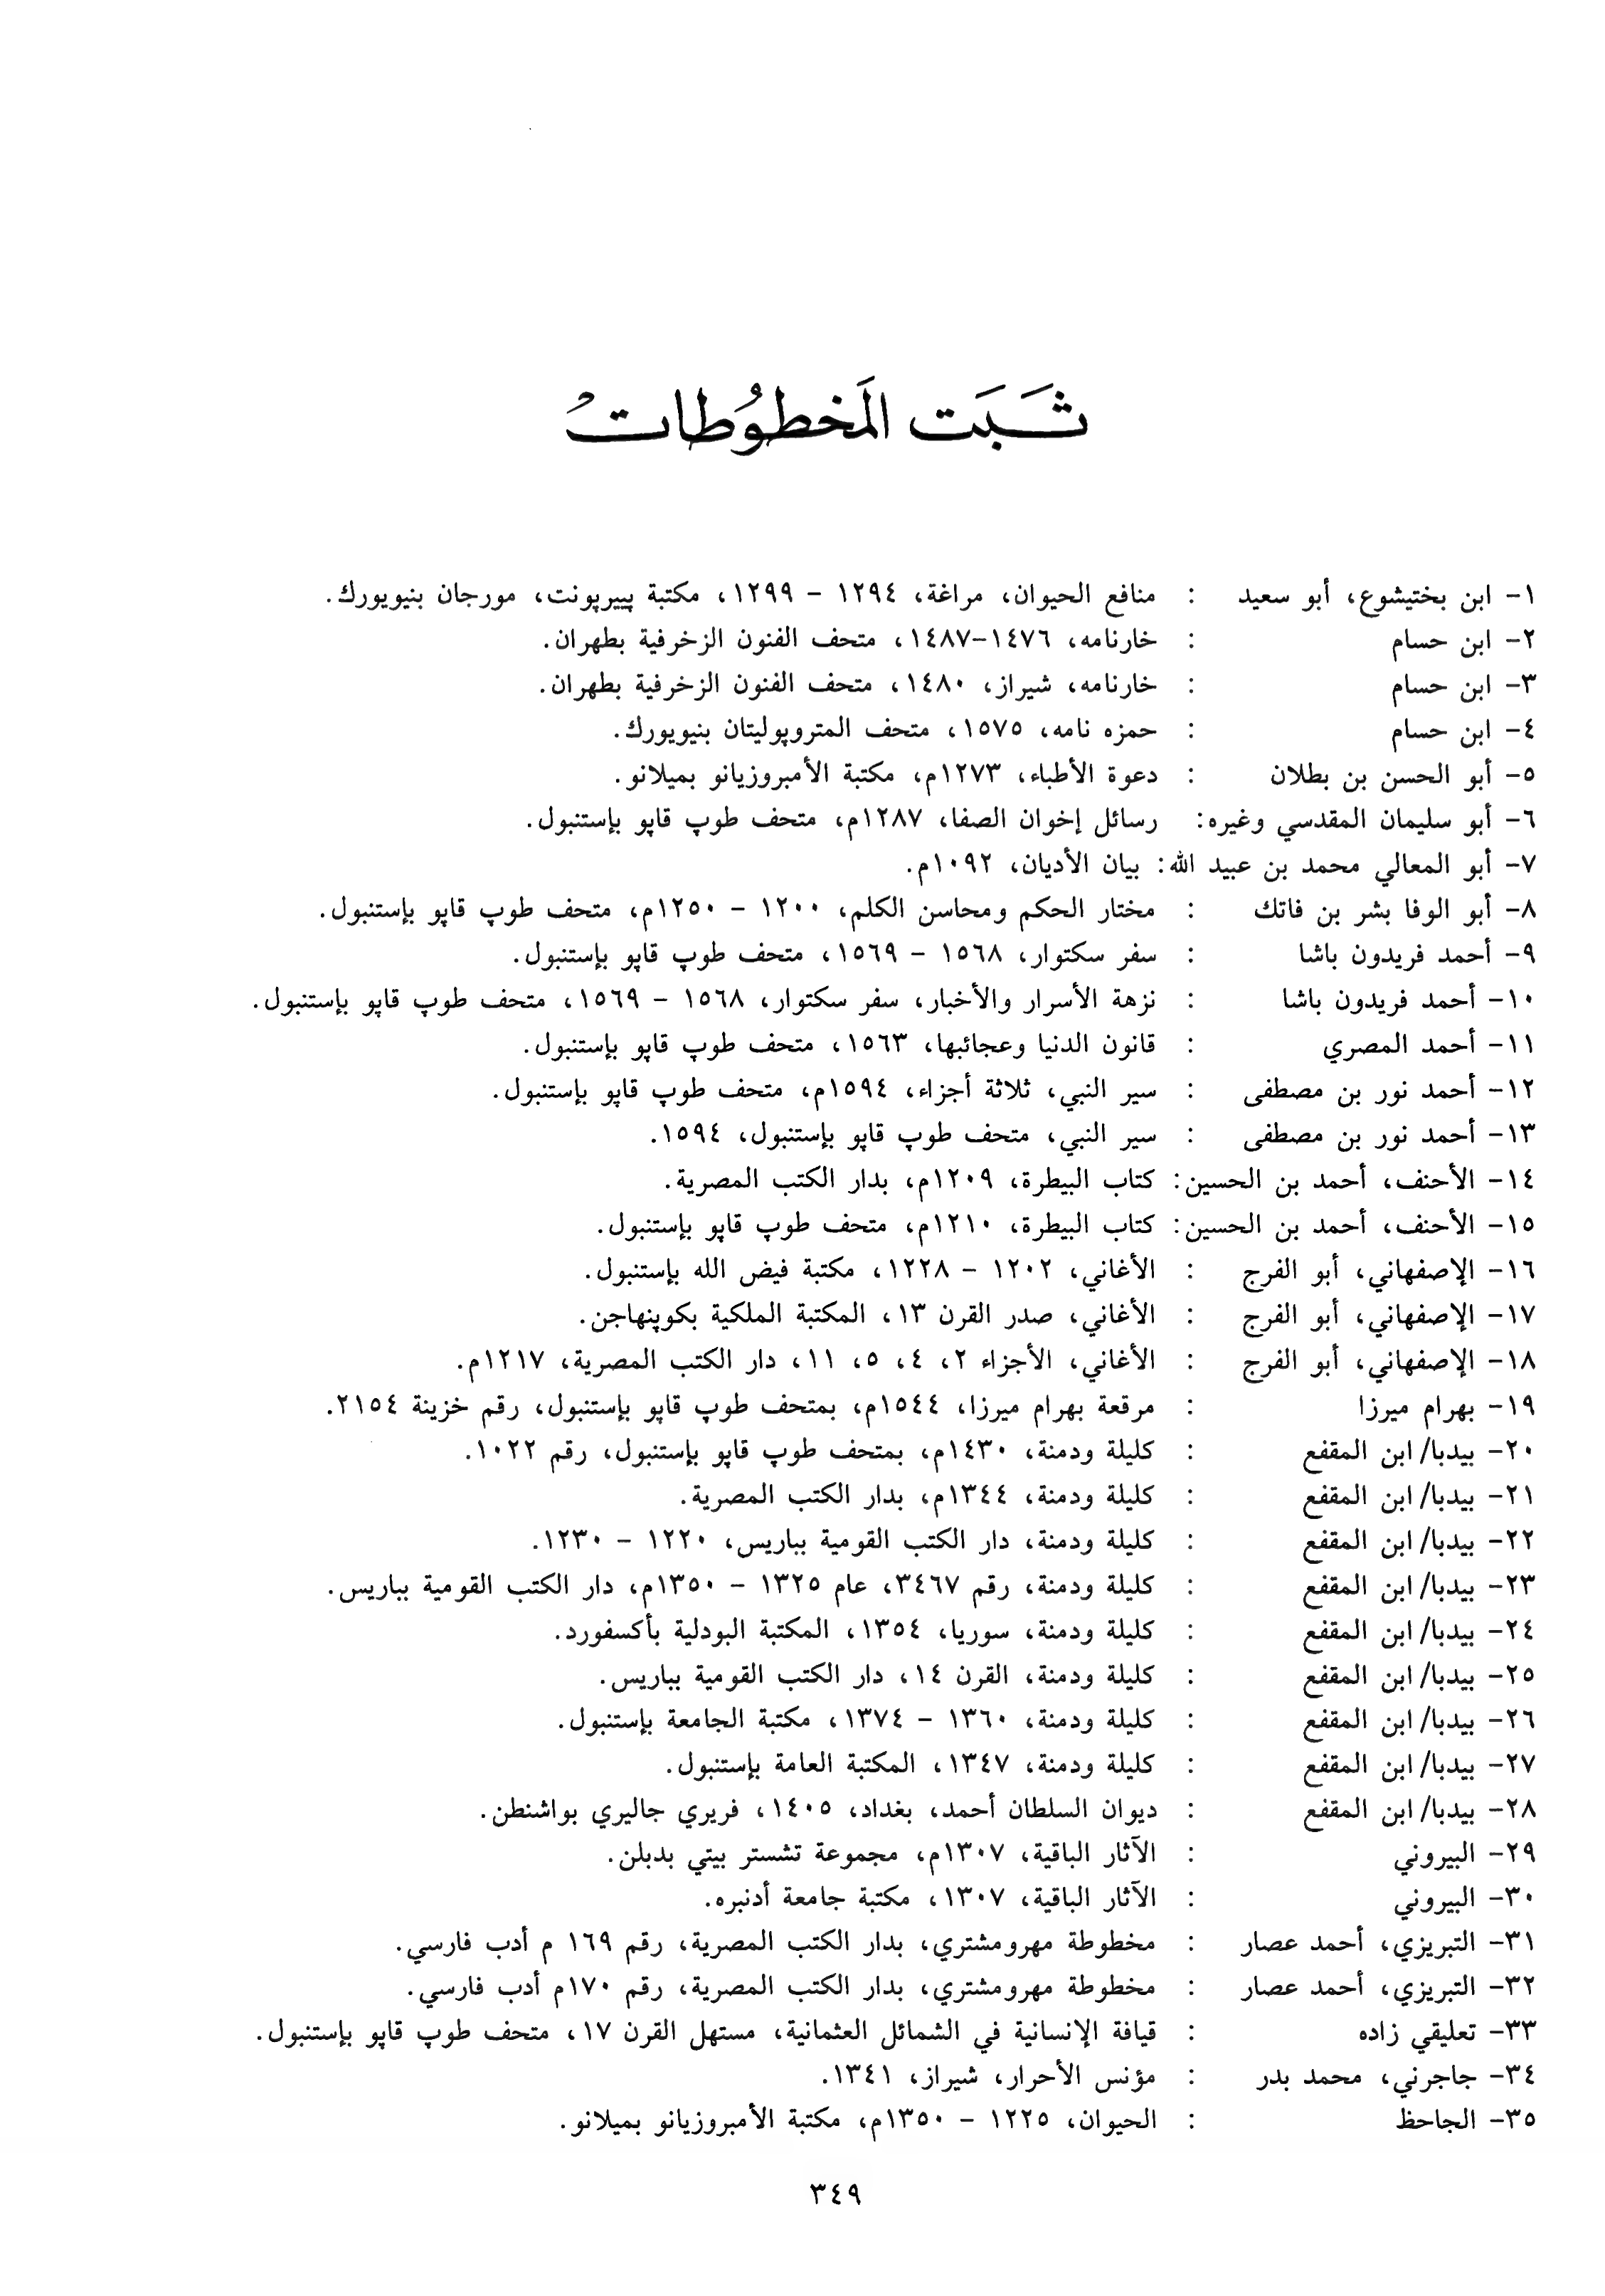 ثَبَت المَخطوُطاتْ
١- ابن بختيشوع، أبو سعيد : منافع الحيوان، مراغة، ١٢٩٤ – ١٢٩٩، مكتبة پييرپونت، مورجان بنيويورك.
٢- ابن حسام : خارنامه، ١٤٧٦-١٤٨٧، متحف الفنون الزخرفية بطهران.
٣- ابن حسام : خارنامه، شيراز، ١٤٨٠، متحف الفنون الزخرفية بطهران.
٤- ابن حسام : حمزه نامه، ١٥٧٥، متحف المتروپوليتان بنيويورك.
٥- أبو الحسن بن بطلان : دعوة الأطباء، ١٢٧٣م، مكتبة الأمبروزيانو بميلانو.
٦- أبو سليمان المقدسي وغيره: رسائل إخوان الصفا، ١٢٨٧م، متحف طوپ قاپو بإستنبول.
٧- أبو المعالي محمد بن عبيد الله: بيان الأديان، ١٠٩٢م.
٨- أبو الوفا بشر بن فاتك : مختار الحكم ومحاسن الكلم، ١٢٠٠ – ١٢٥٠م، متحف طوپ قاپو بإستنبول.
٩- أحمد فريدون باشا : سفر سكتوار، ١٥٦٨ – ١٥٦٩، متحف طوپ قاپو بإستنبول.
١٠- أحمد فريدون باشا : نزهة الأسرار والأخبار، سفر سكتوار، ١٥٦٨ – ١٥٦٩، متحف طوپ قاپو بإستنبول.
١١- أحمد المصري : قانون الدنيا وعجائبها، ١٥٦٣، متحف طوپ قاپو بإستنبول.
١٢- أحمد نور بن مصطفى : سير النبي، ثلاثة أجزاء، ١٥٩٤م، متحف طوپ قاپو بإستنبول.
١٣- أحمد نور بن مصطفى : سير النبي، متحف طوپ قاپو بإستنبول، ١٥٩٤.
١٤- الأحنف، أحمد بن الحسين: كتاب البيطرة، ١٢٠٩م، بدار الكتب المصرية.
١٥- الأحنف، أحمد بن الحسين: كتاب البيطرة، ١٢١٠م، متحف طوپ قاپو بإستنبول.
١٦- الإصفهاني، أبو الفرج : الأغاني، ١٢٠٢ – ١٢٢٨، مكتبة فيض الله بإستنبول.
١٧- الإصفهاني، أبو الفرج : الأغاني، صدر القرن ١٣، المكتبة الملكية بكوپنهاجن.
١٨- الإصفهاني، أبو الفرج : الأغاني، الأجزاء ٢، ٤، ٥، ١١، دار الكتب المصرية، ١٢١٧م.
١٩- بهرام ميرزا : مرقعة بهرام ميرزا، ١٥٤٤م، بمتحف طوپ قاپو بإستنبول، رقم خزينة ٢١٥٤.
٢٠- بيدبا/ ابن المقفع : كليلة ودمنة، ١٤٣٠م، بمتحف طوپ قاپو بإستنبول، رقم ١٠٢٢.
٢١- بيدبا/ ابن المقفع : كليلة ودمنة، ١٣٤٤م، بدار الكتب المصرية.
٢٢- بيدبا/ ابن المقفع : كليلة ودمنة، دار الكتب القومية بباريس، ١٢٢٠ – ١٢٣٠.
٢٣- بيدبا/ ابن المقفع : كليلة ودمنة، رقم ٣٤٦٧، عام ١٣٢٥ – ١٣٥٠م، دار الكتب القومية بباريس.
٢٤- بيدبا/ ابن المقفع : كليلة ودمنة، سوريا، ١٣٥٤، المكتبة البودلية بأكسفورد.
٢٥- بيدبا/ ابن المقفع : كليلة ودمنة، القرن ١٤، دار الكتب القومية بباريس.
٢٦- بيدبا/ ابن المقفع : كليلة ودمنة، ١٣٦٠ – ١٣٧٤، مكتبة الجامعة بإستنبول.
٢٧- بيدبا/ ابن المقفع : كليلة ودمنة، ١٣٤٧، المكتبة العامة بإستنبول.
٢٨- بيدبا/ ابن المقفع : ديوان السلطان أحمد، بغداد، ١٤٠٥، فريري جاليري بواشنطن.
٢٩- البيروني : الآثار الباقية، ١٣٠٧م، مجموعة تشستر بيتي بدبلن.
٣٠- البيروني : الآثار الباقية، ١٣٠٧، مكتبة جامعة أدنبره.
٣١- التبريزي، أحمد عصار : مخطوطة مهرومشتري، بدار الكتب المصرية، رقم ١٦٩ م أدب فارسي.
٣٢- التبريزي، أحمد عصار : مخطوطة مهرومشتري، بدار الكتب المصرية، رقم ١٧٠م أدب فارسي.
٣٣- تعليقي زاده : قيافة الإنسانية في الشمائل العثمانية، مستهل القرن ١٧، متحف طوپ قاپو بإستنبول.
٣٤- جاجرني، محمد بدر : مؤنس الأحرار، شيراز، ١٣٤١.
٣٥- الجاحظ : الحيوان، ١٢٢٥ – ١٣٥٠م، مكتبة الأمبروزيانو بميلانو.
٣٤٩